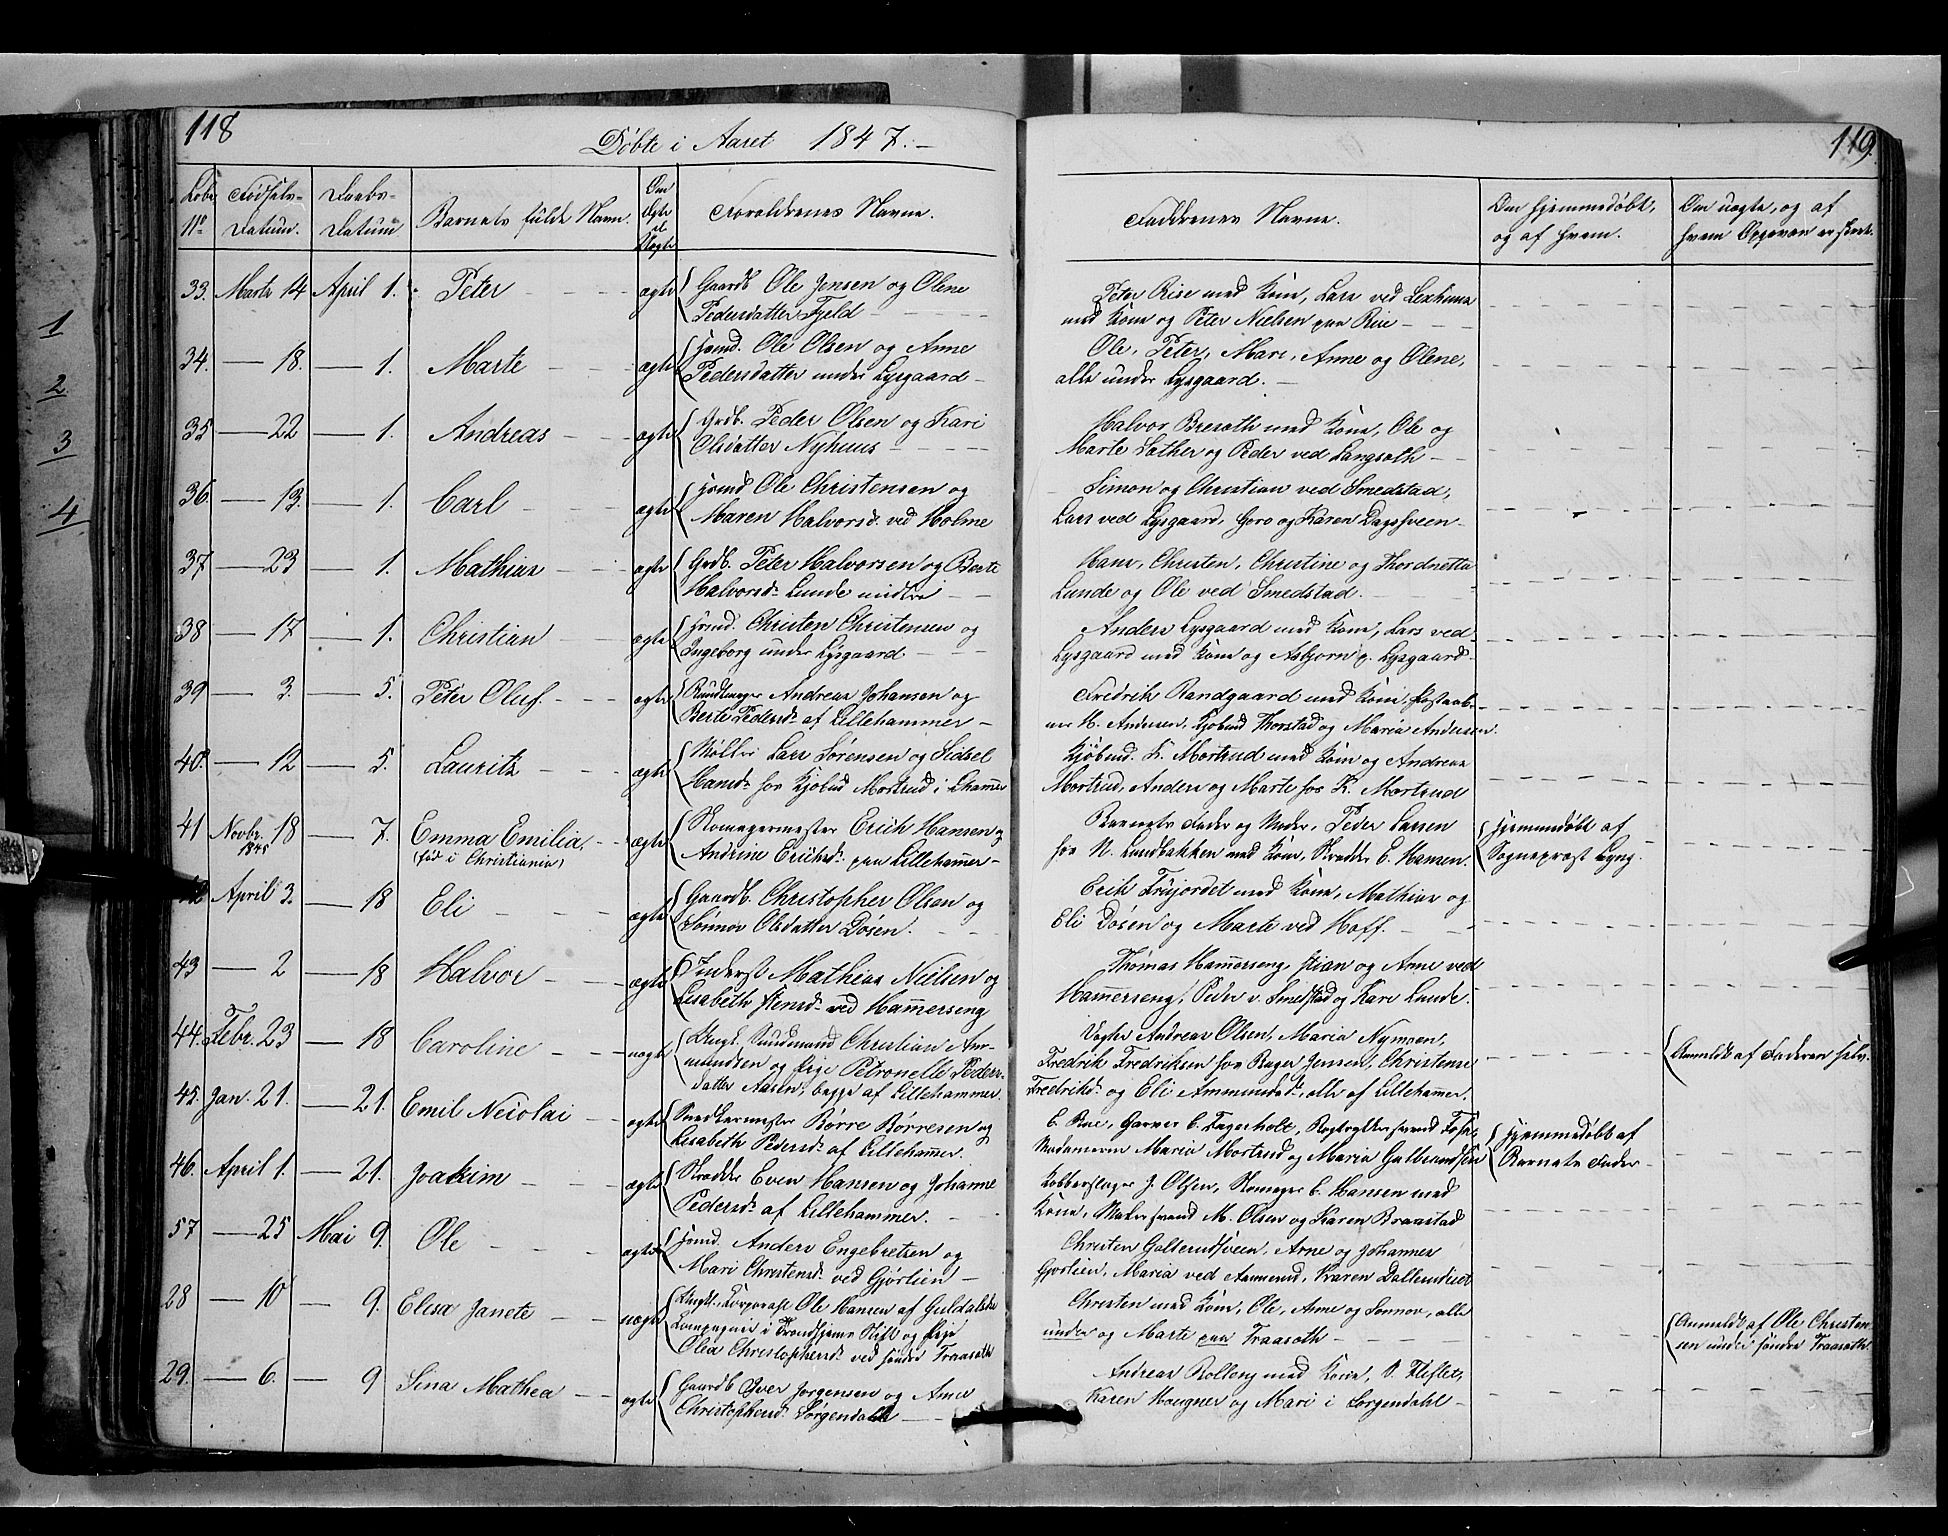 118
Döbte i Aaret 1847.
119.
Löbe No Födsels-Datum. Daabs-Datum Barnets fulde Navn. Om Ægte el Uægte Forældrenes Navne. Faddrenes Navne. Om hjemmedöbt, og af hvem. Om uægte, og af hvem Opgaven er skeet.
33. Marts 14 April 1. Peter ægte Gaardb. Ole Jensen og Olene Peter Rise med Kone, Lars ved
Pedersdatter Fjeld med Kone og Peter Nielsen paa Rise
34. 18. 1. Marte ægte Huusmd. Ole Olsen og Anne Ole, Peter, Mari, Anne og Olene,
Pedersdatter under Lysgaard alle under Lysgaard.
35 22 1. Andreas ægte Grdb. Peder Olsen og Kari Halvor med Kone, Ole og
Olsdatter Nyhuus Marte Sather og Peder ved
36. 13. 1. Carl ægte Huusmd. Ole Christensen og Simon og Christian ved Smedstad,
Maren Halvorsd. ved Holme Lars ved Lysgaard, Goro og Karen Dagsveen
37 23 1. Mathias ægte Grdb. Peter Halvorsen og Berte Hans, Christen, Christine og Thordnetta
Halvorsd. Lunde midtre Lunde og Ole ved Smedstad.
38 17 1. Christian ægte Huusmd. Christen Christensen og Anders Lysgaard med Kone, Lars ved
Ingeborg under Lysgaard Lysgaard med Kone og Asbjorn p. Lysgaard
39 3. 5. Peter Oluf. ægte Andreas Johansen og Fredrik Randgaard med Kone,
Berte Pedersd. af Lillehammer ner H. Andersen, Kjobmd Thorstad og Maria Andersen.
40. 12 5. Lauritz ægte Möller Lars Sörensen og Sidsel Kjöbmd. K. Mortrud med Kone og Andreas
Hansd. hos Kjobmd Mortrud i Lhammer Mortrud, Anders og Marte hos K. Mortrud
41 Novbr. 18 7. Emma Emilia, ægte Skomagermester Erich Hansen og Barnets Fader og Moder, Peder Larsen Hjemmedöbt af
1845 (född i Christiania) Andrine Erichsd. paa Lillehammer hos N. Lundbakken med Kone, Skrædder E. Hansen. Sognepræst Lyng.
42 April 3. 18 Eli ægte Gaardb. Christopher Olsen og Erik Frujordet med Kone, Mathias og
Sönnov Olsdatter Dösen. Eli Dosen og Marte ved Hoff.
43 2 18 Halvor ægte Inderst Mathias Nielsen og Thomas Hammerseng, Stian og Anne ved
Lisabeth Stensd. ved Hammerseng Hammerseng, Peder v. Smedstad og Kari Lunde.
44. Febr. 23 18 Caroline uægte Ungk. Christian Am- Andreas Olsen, Maria Nymoen,
mundsen og Pige Petronelle Peders- Fredrik Fredriksen hos Jensen, Christense Anmeldt af Faderen selv.
datter Aasen, begge af Lillehammer. Fredriksd. og Eli Ammundsd., alle af Lillehammer.
45. Jan. 21. 21. Emil Nicolai ægte Snedkermester Börre Börresen og C. Rise, Garver C. Fagerholt,
Lisabeth Pedersd. af Lillehammer. Madamerne Maria Mortrud og Maria Gulbrandsen Hjemmedöbt af
Barnets Fader
46. April 1. 21. Joakim ægte Skrædder Even Hansen og Johanne Kobberslager J. Olsen, Skomager E. Hansen med
Pedersd. af Lillehammer. Kone, Malersvend M. Olsen og Karen Braastad
57 25 Mai 9. Ole ægte Huusmd. Anders Engebretsen og Christen Galterudsveen, Arne og Johannes
Mari Christensd. ved Gjörlien Gjorlien, Maria ved Aamrud, Karen
28 10 9. Elisa Janete uægte Ungk. Corporal Ole Hansen af Guldalske Christen med Kone, Ole, Anne og Sonnov, alle Anmeldt af Ole Christen-
Compagnie i Trondhjems Stift og Pige under og Marte paa Fraasoth sen under söndre Fraasoth.
Olia Christophersd. ved söndre Fraasoth
29. 6. 9 Sina Mathea ægte Gaardb. Iver Jorgensen og Anne Andreas Rolleng med Kone, O. Fliflet,
Christophersd. Sörgendahl Karen Hougner og Mari i Sorgendahl
1
2
3
4